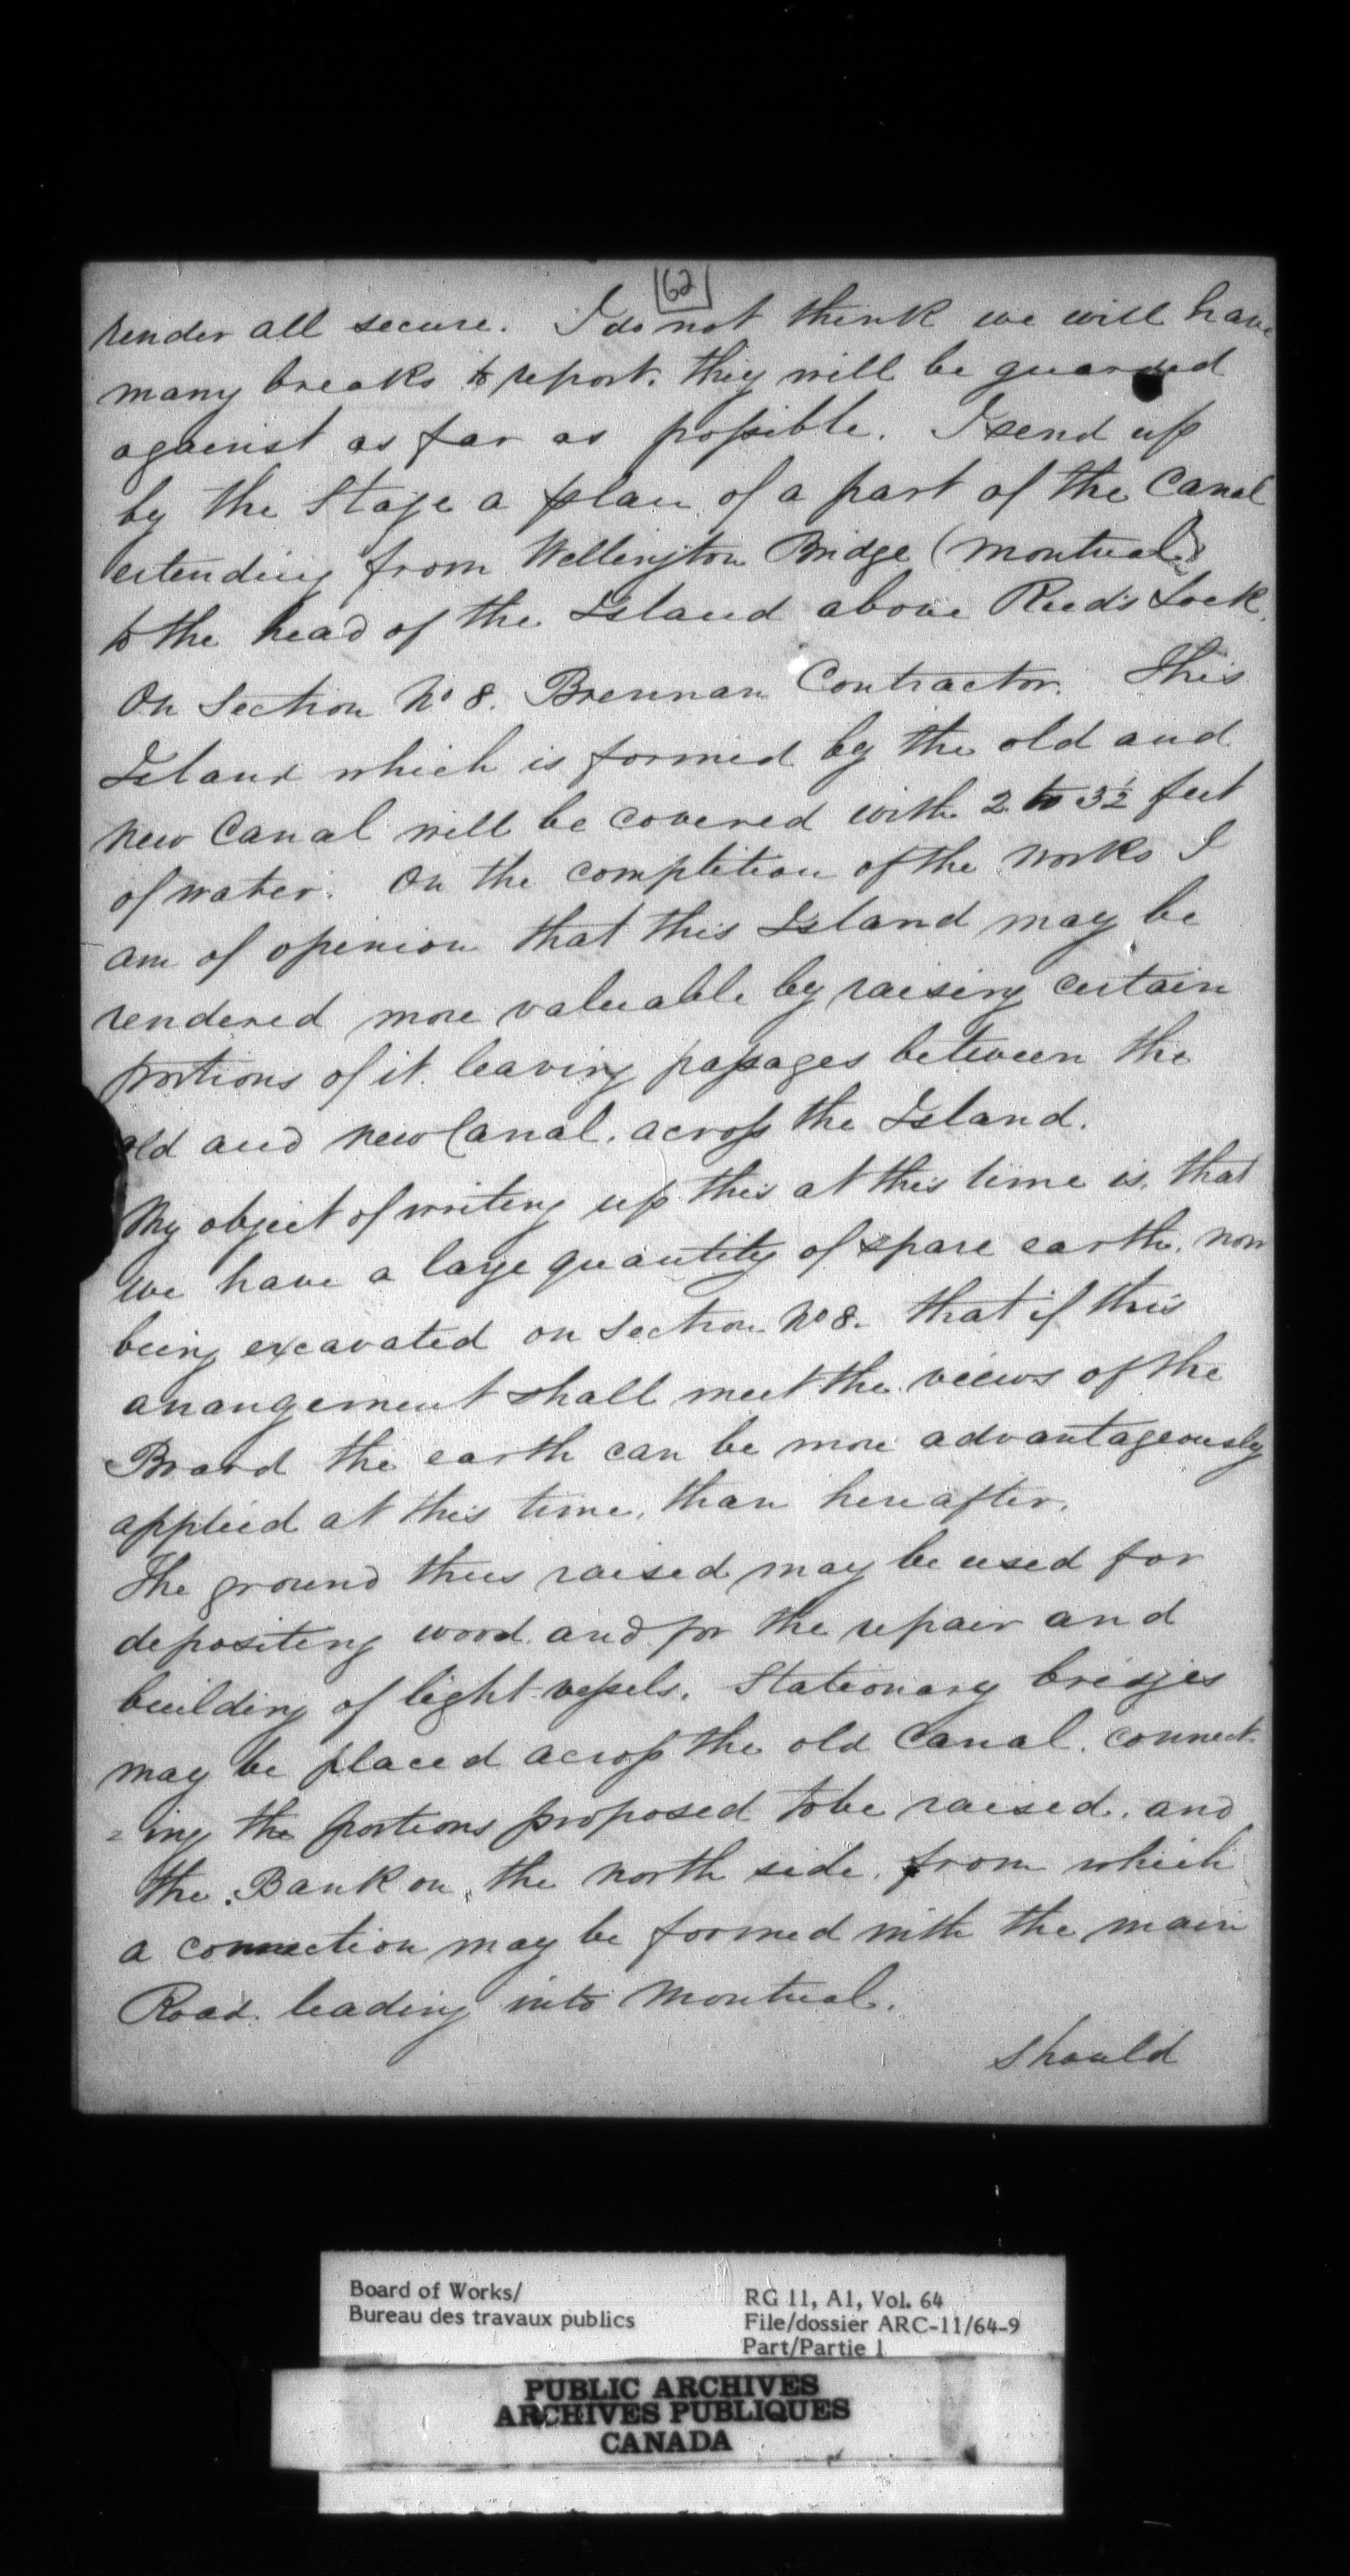 62
render all secure. I do not think we will have
many breaks to report. they will be guarded
against as far as possible. I send up
by the Stage a plan of a part of the Canal
extending from Wellington Bridge (Montreal)
to the head of the Island above Reed's Lock.
On Section No 8. Brennan Contractor. This
Island which is formed by the old and
new Canal will be covered with 2 to 3½ feet
of water. On the completion of the works I
am of opinion that this Island may be
rendered more valuable by raising certain
portions of it. leaving passages between the
old and new Canal. across the Island.
My object of writing up this at this time is. that
we have a large quantity of spare earth. now
being excavated on Section No 8. that if this
arrangement shall meet the views of the
Board the earth can be more advantageously
applied at this time. than hereafter.
The ground thus raised may be used for
depositing wood. and for the repair and
building of light vessels. Stationary bridges
may be placed across the old Canal. connect-
=ing the portions proposed to be raised. and
the Bank on the north side. from which
a connection may be formed with the main
Road leading into Montreal.
Should
Board of Works/
Bureau des travaux publics
RG 11, A1, Vol. 64
File/dossier ARC-11/64-9
Part/Partie 1
PUBLIC ARCHIVES
ARCHIVES PUBLIQUES
CANADA